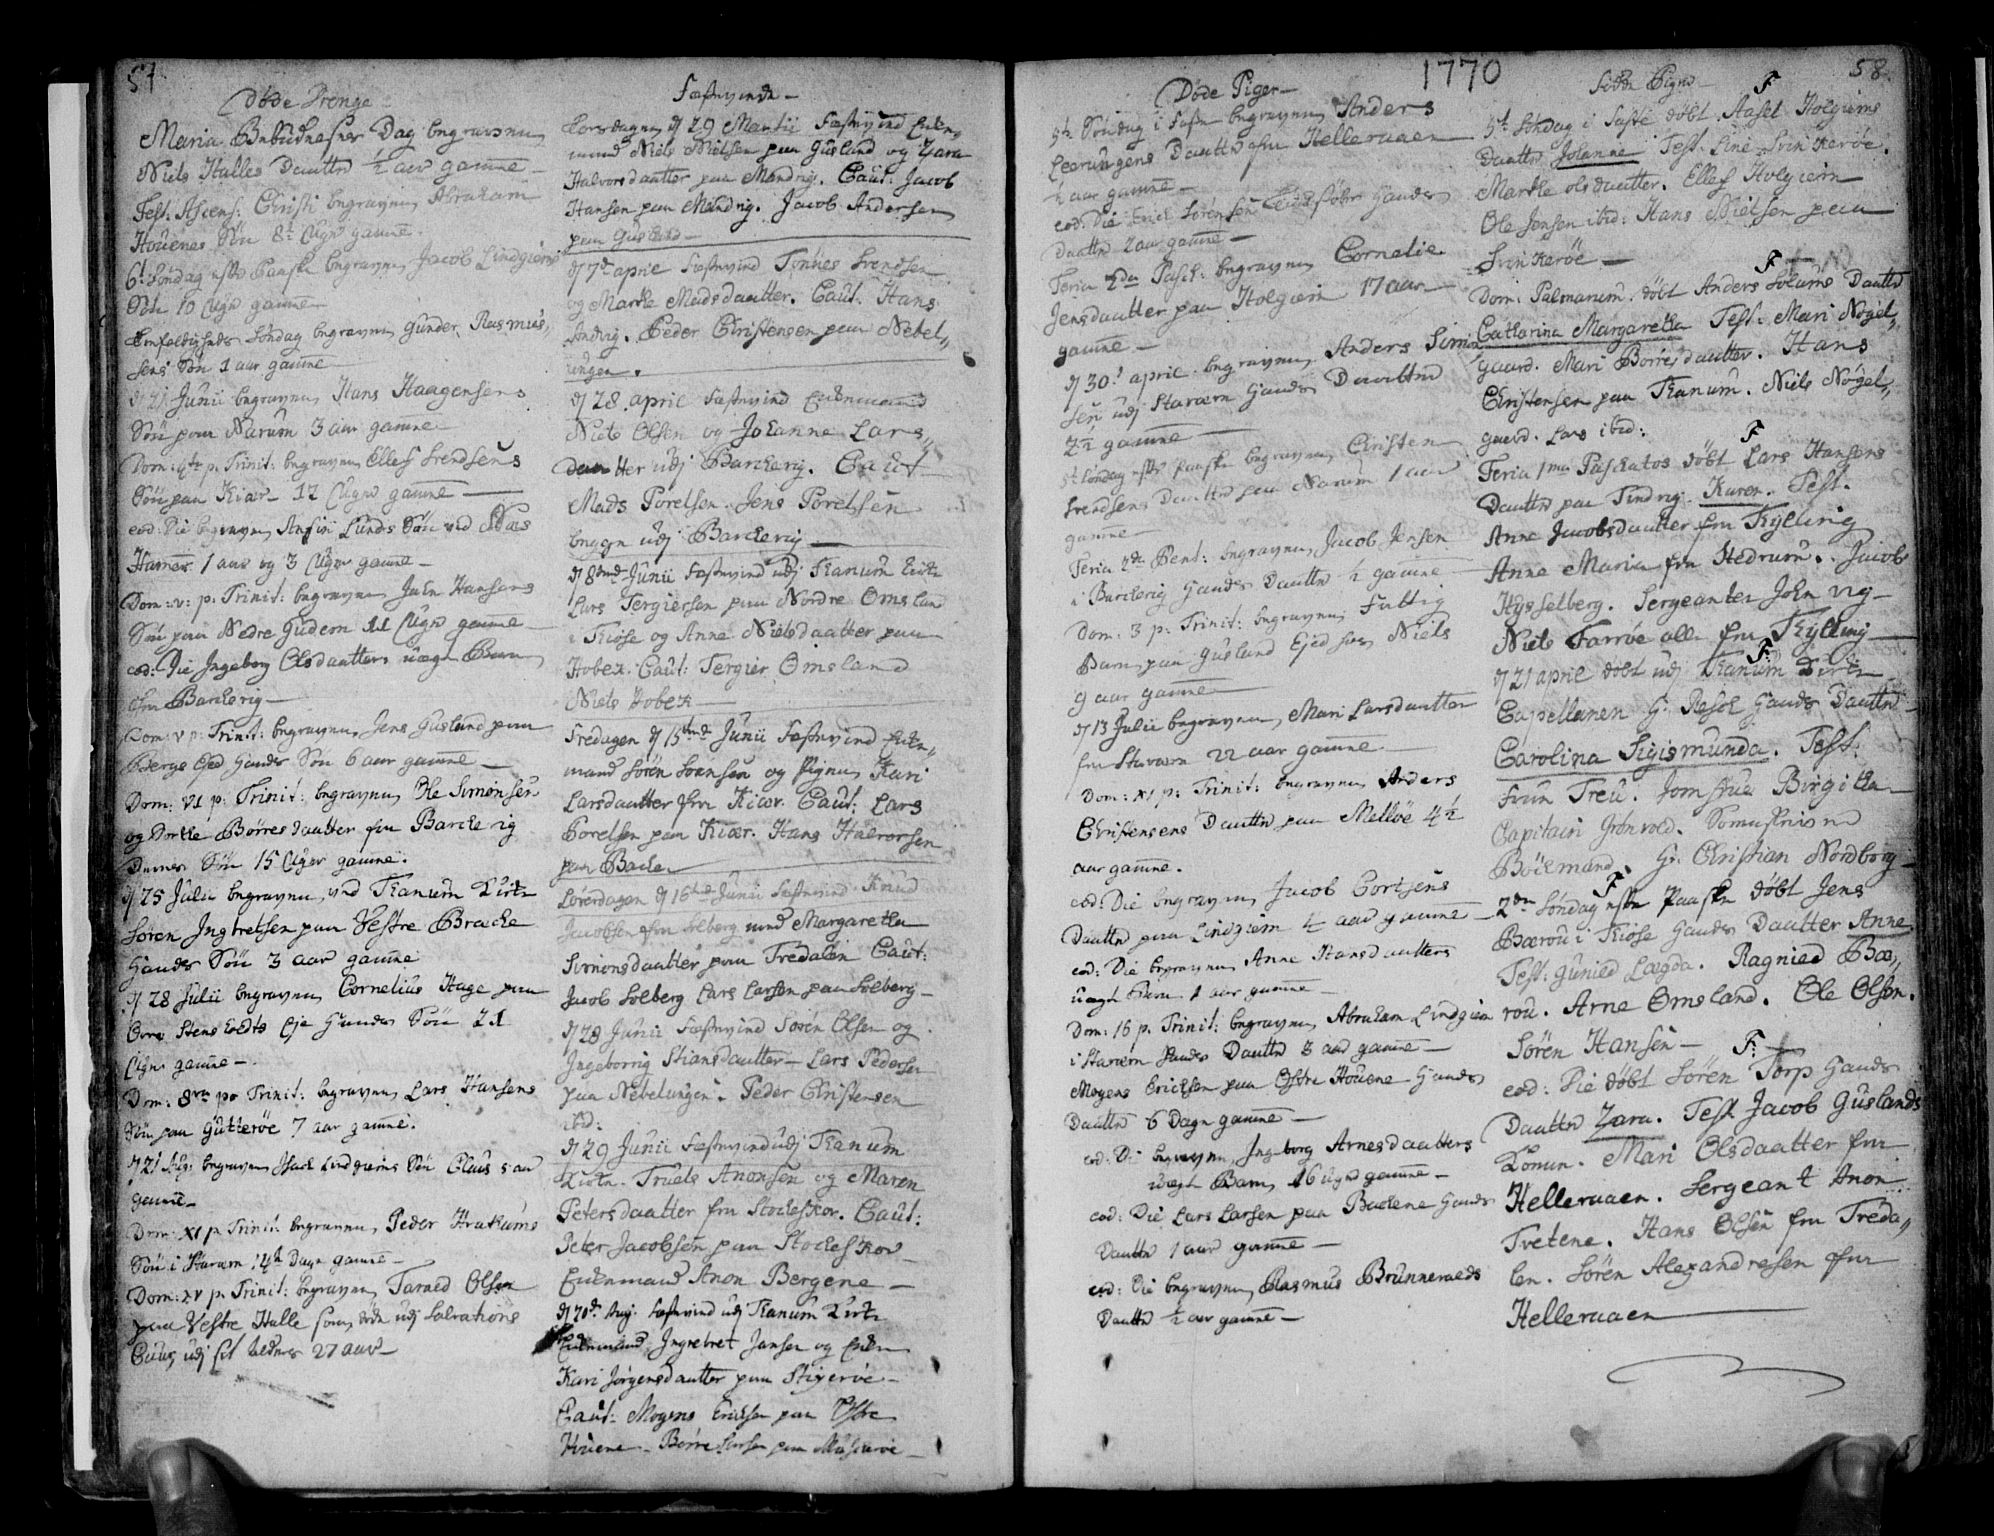 57
Døde Drenge
Maria Bebudelses Dag begraven
Niels Halles Daatter ½ aar gamle
Fest: Ascens: Christi begraven Abraham
Houenes Søn 8t Uger gamle.
6t Søndag efter Paaske begraven Jacob Lindgiems
Søn 10 Uger gamle
Trefoldigheds Søndag begraven Gunder Rasmus,,
sens Søn 1 aar gamle
d 21 Junii begraven Hans Haagensens
Søn paa Narum 3 aar gamle
Dom: 4te p. Trinit: begraven Ellef Svendsens
Søn paa Kiær 12 Uger gamle
eod: Die begraven Lunds Søn ved
Hamer 1 aar og 3 Uger gamle
Dom: v: p: Trinit: begraven Hansens
Søn paa Nedre Gudem 11 Uger gamle
eod: Die Ingeborg Olsdaatters uægte Barn
fra Barkevig
Dom: v p: Trinit: begraven Jens Guslund paa
Berge Ejed hands Søn 6 aar gamle
Dom: v1 p: Trinit: begraven Ole Simonsen
og Dorthe Børresdaatter fra Barkevig
Deres Søn 15 Uger gamle.
d 25 Julii begraven ved Tanum Kirke
Søren Ingbretsen paa Vestre Brecke
Hands Søn 3 aar gamle
d 28 Julii begraven Cornelius Hage paa
Stens Holdts Eje Hands Søn 21
Uger gamle
Dom: 8va po Trinit: begraven Lars Hansens
Søn paa Gutterøe 7 aar gamle.
d 21 Aug: begraven Isach Lindgiems Søn Claus 5 aar
gamle
Dom: x1 p Trinit: begraven, Peder
Søn i Stavern, 14 Dage gamle
Dom: xv p: Trinit: begraven Olsen
paa Vestre Halle som døde udj Salvations
udj sit Alders 27 aar
Fæstevende
Torsdagen d 29 Martii Fæstevend Enke,,
mand Niels Nielsen paa Guslund og Zara
Halvorsdaatter paa Mandvig. Caut: Jacob
Hansen paa Mandvig. Jacob Andersen
paa Guslund
d 7de april Fæstevend Tønnes Svendsen
og Marthe Madsdaatter. Caut: Hans
Peder Christensen paa Nevel,,
ungen.
d 28 april Fæstevend Enkemand
Niels Olsen og Johanne Lars,,
daatter udj Barckevig. Caut
Mads Porelsen. Jens Porelsen
begge udj Barckevig
d 8tende Junii Fæstevend udj Tanum Kirke
Lars Tergiersen paa Nordre Omsland
i Kiose og Anne Nielsdaatter paa
Hobek. Caut: Tergier Omsland
Niels Hobek
Fredagen d 15tende Junii Fæstevend Enke,,
mand Søren Sørensen og Pigen Kari
Larsdaatter fra Kiær. Caut: Lars
Porelsen paa Kiær. Hans Halvorsen
paa Backen
Løverdagen d 16tende Junii Fæstevend Knud
Jacobsen fra Solberg med Margaretha
Simonsdaatter paa Tredalen Caut:
Jacob Solberg Lars Larsen paa Solberg
d 28 Junii Fæstevend Søren Olsen og
Ingeborrig Stiansdaatter Lars Pedersen
paa Nebelungen. Peder Christensen
ibd:
d 29 Junii Fæstevend udj Tanum
Kirke. Truels Anonsen og Maren
Petersdaatter fra Stockeskov. Caut:
Peter Jacobsen paa Stockeskov
Enkemand Anon Bergene
d 20de Aug: Fæstevend udj Tanum Kirke
Enkemand, Ingebret Jansen og Enke
Kari Jørgensdaatter paa Stigerøe
Caut: Mogens Ericksen paa Østre
Houene Børre Larsen paa
1770
Døde Piger
5te Søndag i Faste begraven Anders
Daatter fra Helleraaen
½ aar gamle
eod: Die Erich Sørensen Hands
Daatter 2 aar gamle
Feria 2da Pasch: begraven Cornelie
Jensdaatter paa Holgiem 17 aar
gamle
d 30t april begraven Anders Simon
sen udj Stavern Hands Daatter
2½ gamle
5t Søndag efter Paaske begraven Christen
Svendsens Daatter paa Narum 1 aar
gamle
Feria 2da Pent: begraven Jacob Jensen
i Barckevig Hands Daatter ½ gamle
Dom: 3 p: Trinit: begraven Fattig
Barn paa Guslund Ejed Niels
9 aar gamle
d 13 Julii begraven, Mari Larsdaatter
fra Stavern 22 aar gamle
Dom: x1 p: Trinit: begraven Anders
Christensens Daatter paa Melløe 4½
aar gamle.
eod: Die begraven Jacob Cortsens
Daatter paa Lindgiem ½ aar gamle
eod: Die begraven Anne Hansdaatters
uægte Barn 1 aar gamle
Dom: 16 p. Trinit: begraven Abraham Lindgiem
i Stavern Hands Daatter 3 aar gamle
Mogens Ericksen paa Østre Houene Hands
Daatter 6 Dage gamle
eod: Die begraven, Ingeborg Arnesdaatters
uægte Barn 16 uger gamle
eod: Die Lars Larsen paa Backene Hands
Daatter 1 aar gamle
eod: Die begraven Rasmus Brunnevaeds
Daatter ½ aar gamle
58.
Fødde Pigen
F
5te Søndag i Faste døbt Holgiems
Daatter Johanne Test. Line
Marthe olsdaatter. Ellef Holgiem
Ole Jensen ibid: Hans Nielsen paa
F
Dom: Palmarum: døbt Anders Solums Daatter
Catharina Margaretha Test: Mari Nøgel,,
gaard. Mari Børresdaatter. Hans
Christensen paa Tanum. Niels Nøgel,,
gaard. Lars ibid:
F
Feria 1ma Paschatos døbt Lars Hansens
Daatter paa Tindvig. Karen. Test.
Anne Jacobsdaatter fra Kylling
Anne Maria fra Hedrum. Jacob
Hysselberg. Sergeanten John
Niels Farrøe alle fra Kylling
F:
d 21 april døbt udj Tanum Kirke
Capellanen Hr Resch Hands Daatter
Carolina Sigismunda. Test:
Fruen Treu. Jomfrue Birgitha
Capitain Grønvold.
Böckmand. Hr Christian Nordborg
F
2den Søndag efter Paaske døbt Jens
Bærou i Kiose Hands Daatter Anne.
Test: Gunied Lægda. Ragnied Bæ,,
rou. Arne Omsland. Ole Olsen.
Søren Hansen
F:
eod: Die døbt Søren Torp Hands
Daatter Zara. Test. Jacob Guslands
Konen. Mari Olsdaatter fra
Helleraaen. Sergeant Anon
Tvetene. Hans Olsen fra Treda,,
len. Søren Alexandresen fra
Helleraaen